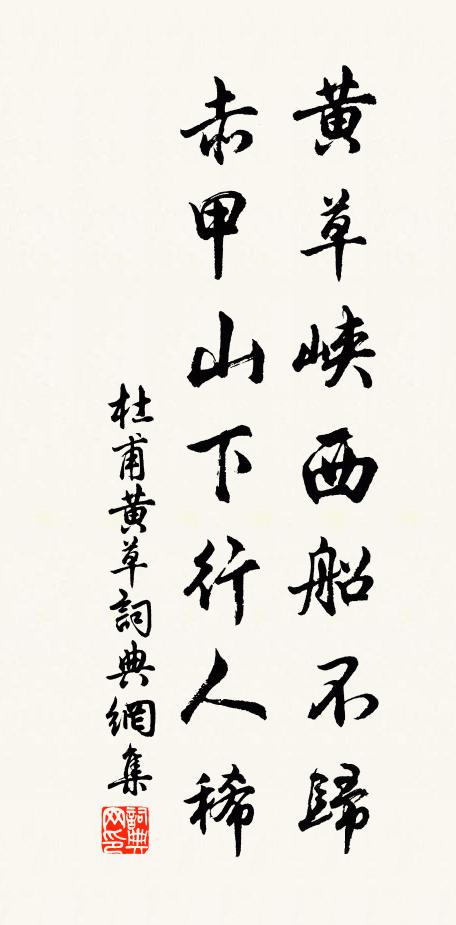 黄草峡西船不歸
赤甲山下行人稀
杜甫黄草詞典網集
詞典網印